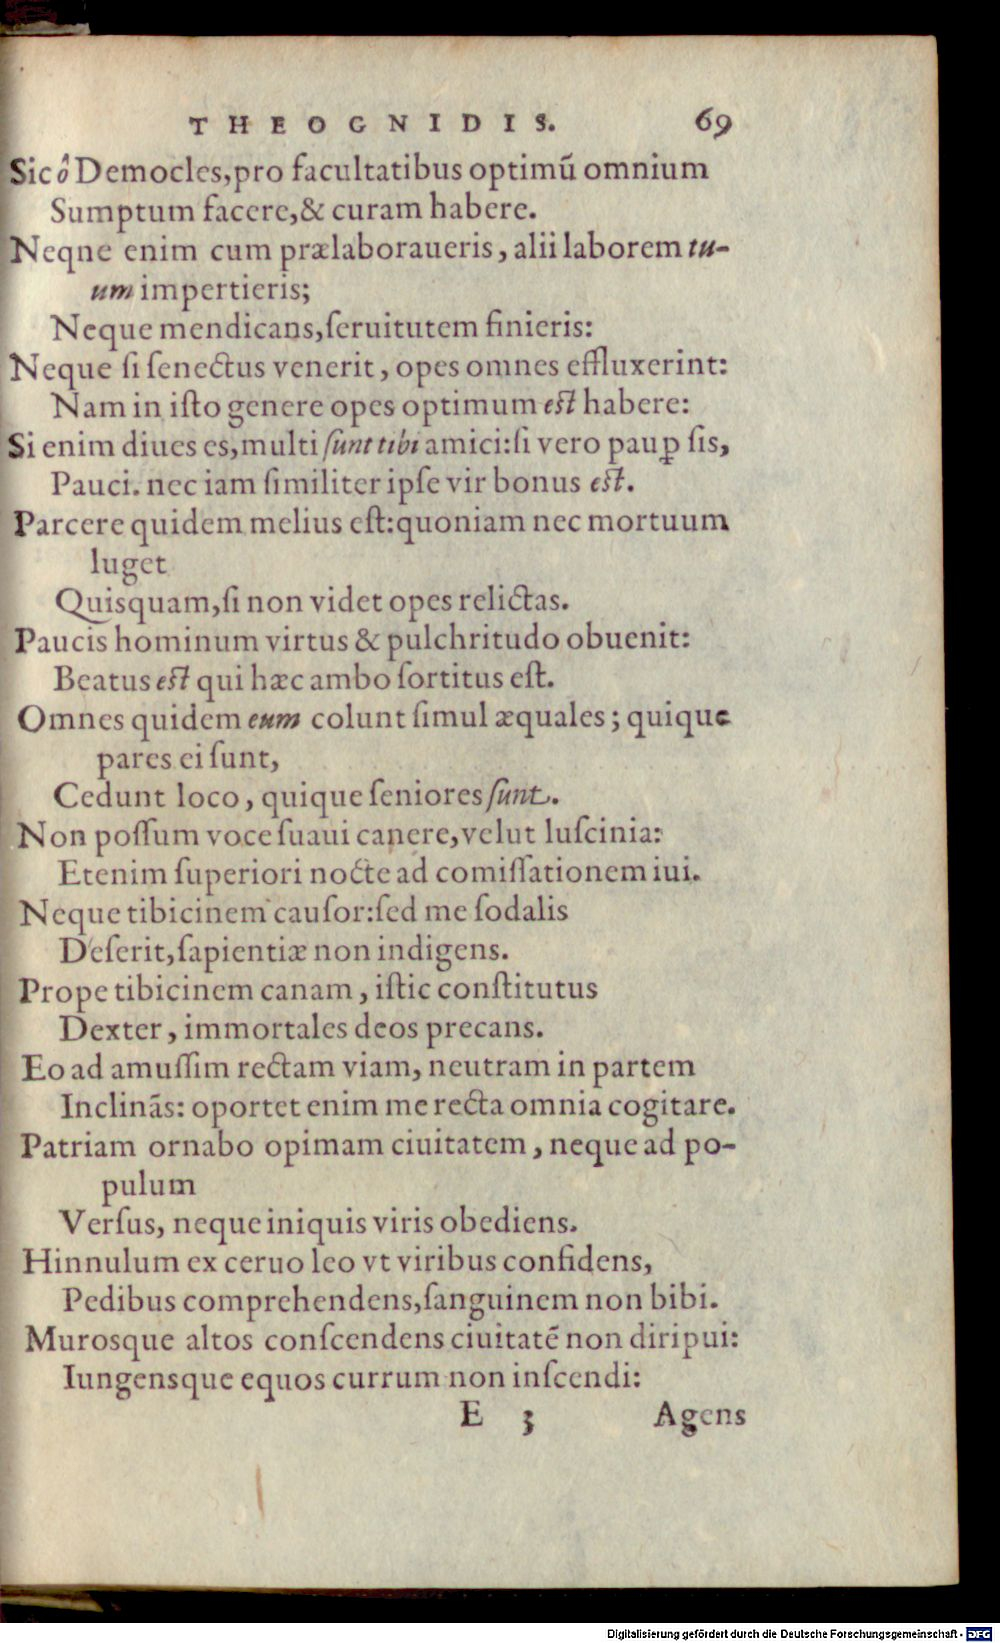 THEOGNIDIS. 69
Sic ô Democles, pro facultatibus optimũ omnium
Sumptum facere, & curam habere.
Neqne enim cum prælaboraueris, alii laborem tu-
um impertieris;
Neque mendicans, ſeruitutem finieris:
Neque ſi ſenectus venerit, opes omnes effluxerint:
Nam in iſto genere opes optimum eſt habere:
Si enim diues es, multi ſunt tibi amici: ſi vero paup̱ ſis,
Pauci. nec iam ſimiliter ipſe vir bonus eſt.
Parcere quidem melius eſt: quoniam nec mortuum
luget
Quisquam, ſi non videt opes relictas.
Paucis hominum virtus & pulchritudo obuenit:
Beatus eſt qui hæc ambo ſortitus eſt.
Omnes quidem eum colunt ſimul æquales; quique
pares ei ſunt,
Cedunt loco, quique ſeniores ſunt.
Non poſſum voce ſuaui canere, velut luſcinia:
Etenim ſuperiori nocte ad comiſſationem iui.
Neque tibicinem cauſor: ſed me ſodalis
Deſerit, ſapientiæ non indigens.
Prope tibicinem canam, iſtic conſtitutus
Dexter, immortales deos precans.
Eo ad amuſſim rectam viam, neutram in partem
Inclinãs: oportet enim me recta omnia cogitare.
Patriam ornabo opimam ciuitatem, neque ad po-
pulum
Verſus, neque iniquis viris obediens.
Hinnulum ex ceruo leo vt viribus confidens,
Pedibus comprehendens, ſanguinem non bibi.
Murosque altos conſcendens ciuitatẽ non diripui:
Iungensque equos currum non inſcendi:
E 3 Agens
Digitalisierung gefördert durch die Deutsche Forschungsgemeinschaft - DFG